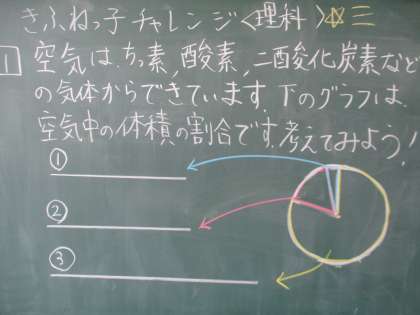 きふねっ子チャレンジ〈理科〉
1 空気は、ちっ素、酸素、二酸化炭素など
の気体からできています。下のグラフは、
空気中の体積の割合です。考えてみよう!
①
②
③